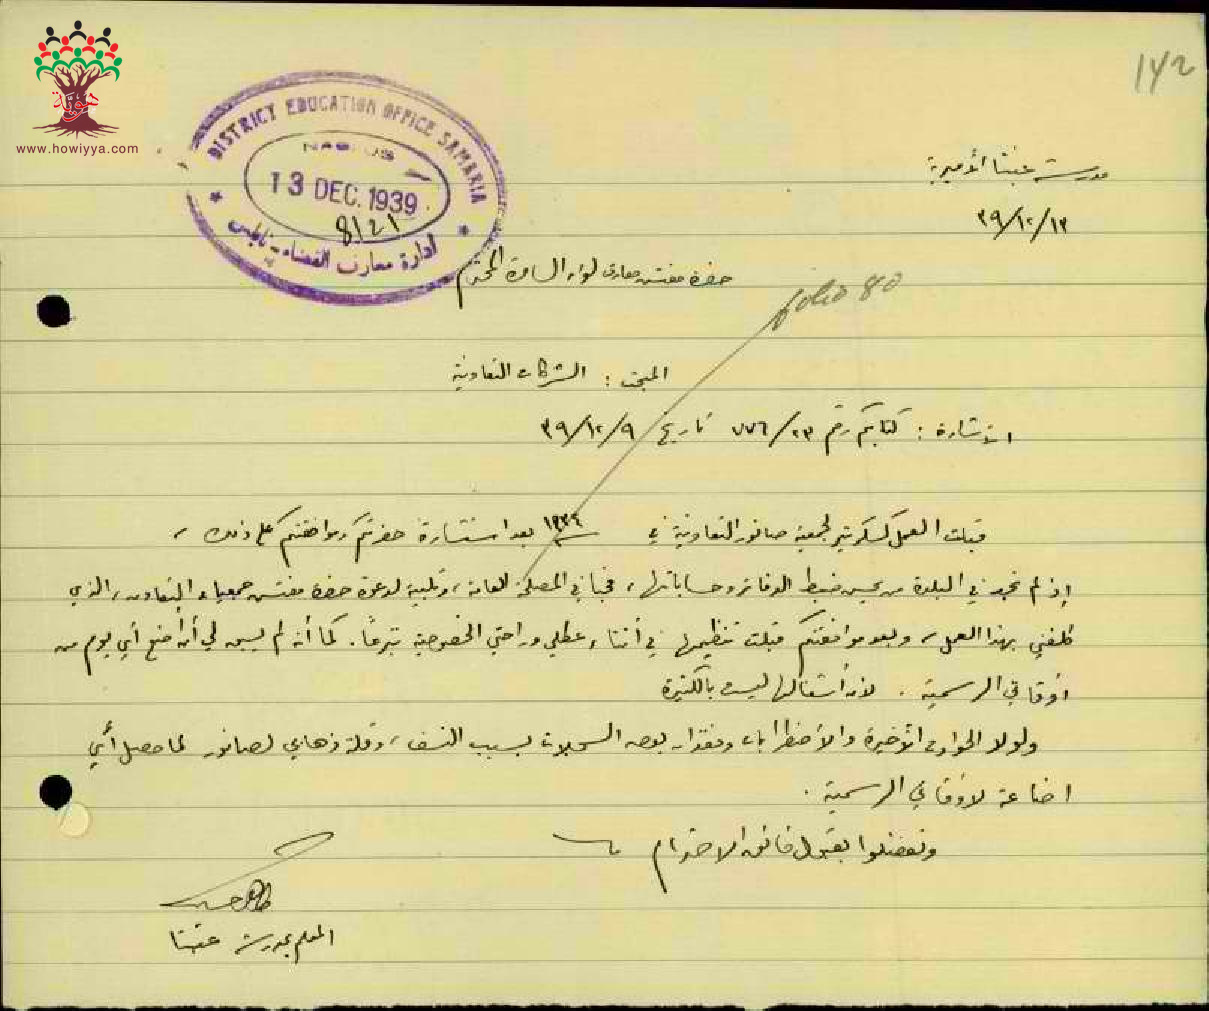 هوية
www.howiyya.com
DISTRICT EDUCATION OFFICE SAMARIA
NABLUS
13 DEC. 1939
8121
ادارة معارف القضاء نابلس
142
مدرسة عنبتا الأميرية
٣٩/١٢/١٣
حضرة مفتش معارف لواء السامرة المحترم
folio 80
المبحث : الشركات التعاونية
الاشارة : كتابكم رقم ٢٣/٧٧٦ تاريخ ٣٩/١٢/٩
قبلت العمل كسكرتير لجمعية صانور التعاونية في سنة ١٩٣٤ بعد استشارة حضرتكم وموافقتكم على ذلك ،
إذ لم نجد في البلدة من يحسن ضبط الدفاتر وحساباتها ، فحبا في المصلحة العامة ، وتلبية لدعوة حضرة مفتش جمعيات التعاون ، الذي
كلفني بهذا العمل ، وبعد موافقتكم قبلت تنظيمها في أثناء عطلي وراحتي الخصوصية تبرعًا . كما أنه لم يسبق لي أن أضع أي يوم من
أوقاتي الرسمية . لأن أشغالها ليست بالكثيرة
ولولا الحوادث الأخيرة والاضطرابات وفقدان بعض السجلات بسبب النسف ، وقلة ذهابي لصانور لما حصل أي
اضاعة لأوقاتي الرسمية .
وتفضلوا بقبول فائق الاحترام
المعلم بمدرسة عنبتا